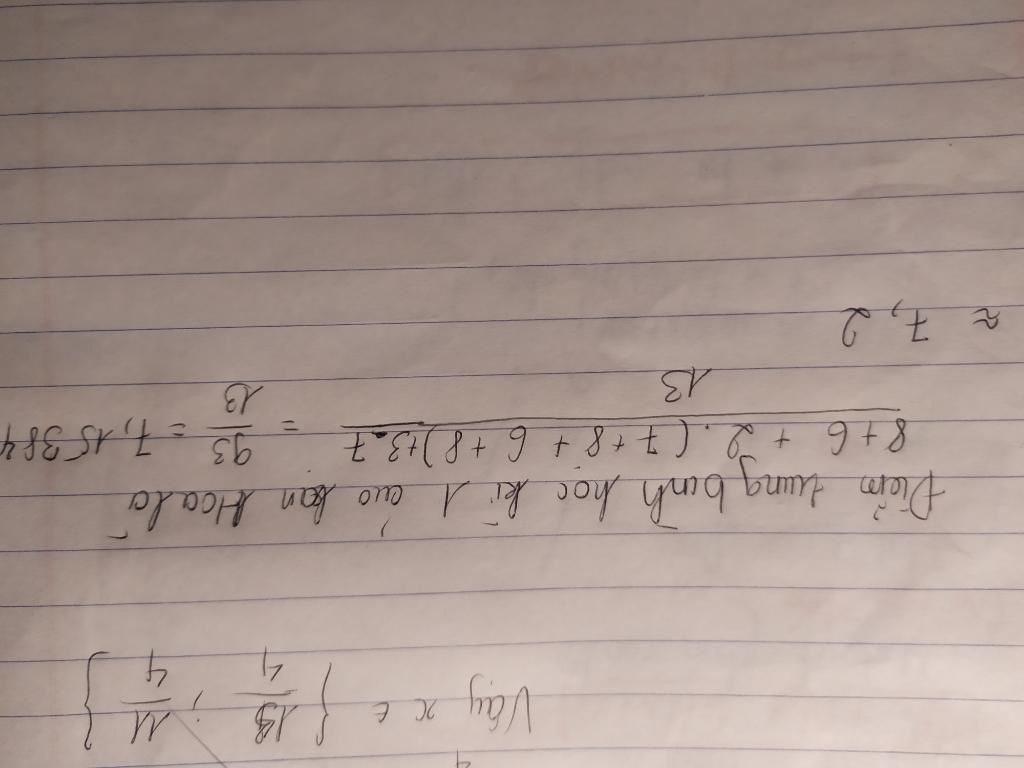 Vậy x ∈ { 13/4 ; 11/4 }
Điểm trung bình học kì 1 của bạn Hoa là
(8 + 6 + 2 . (7 + 8 + 6 + 8) + 3.7)/13 = 93/13 = 7,15384
≈ 7,2